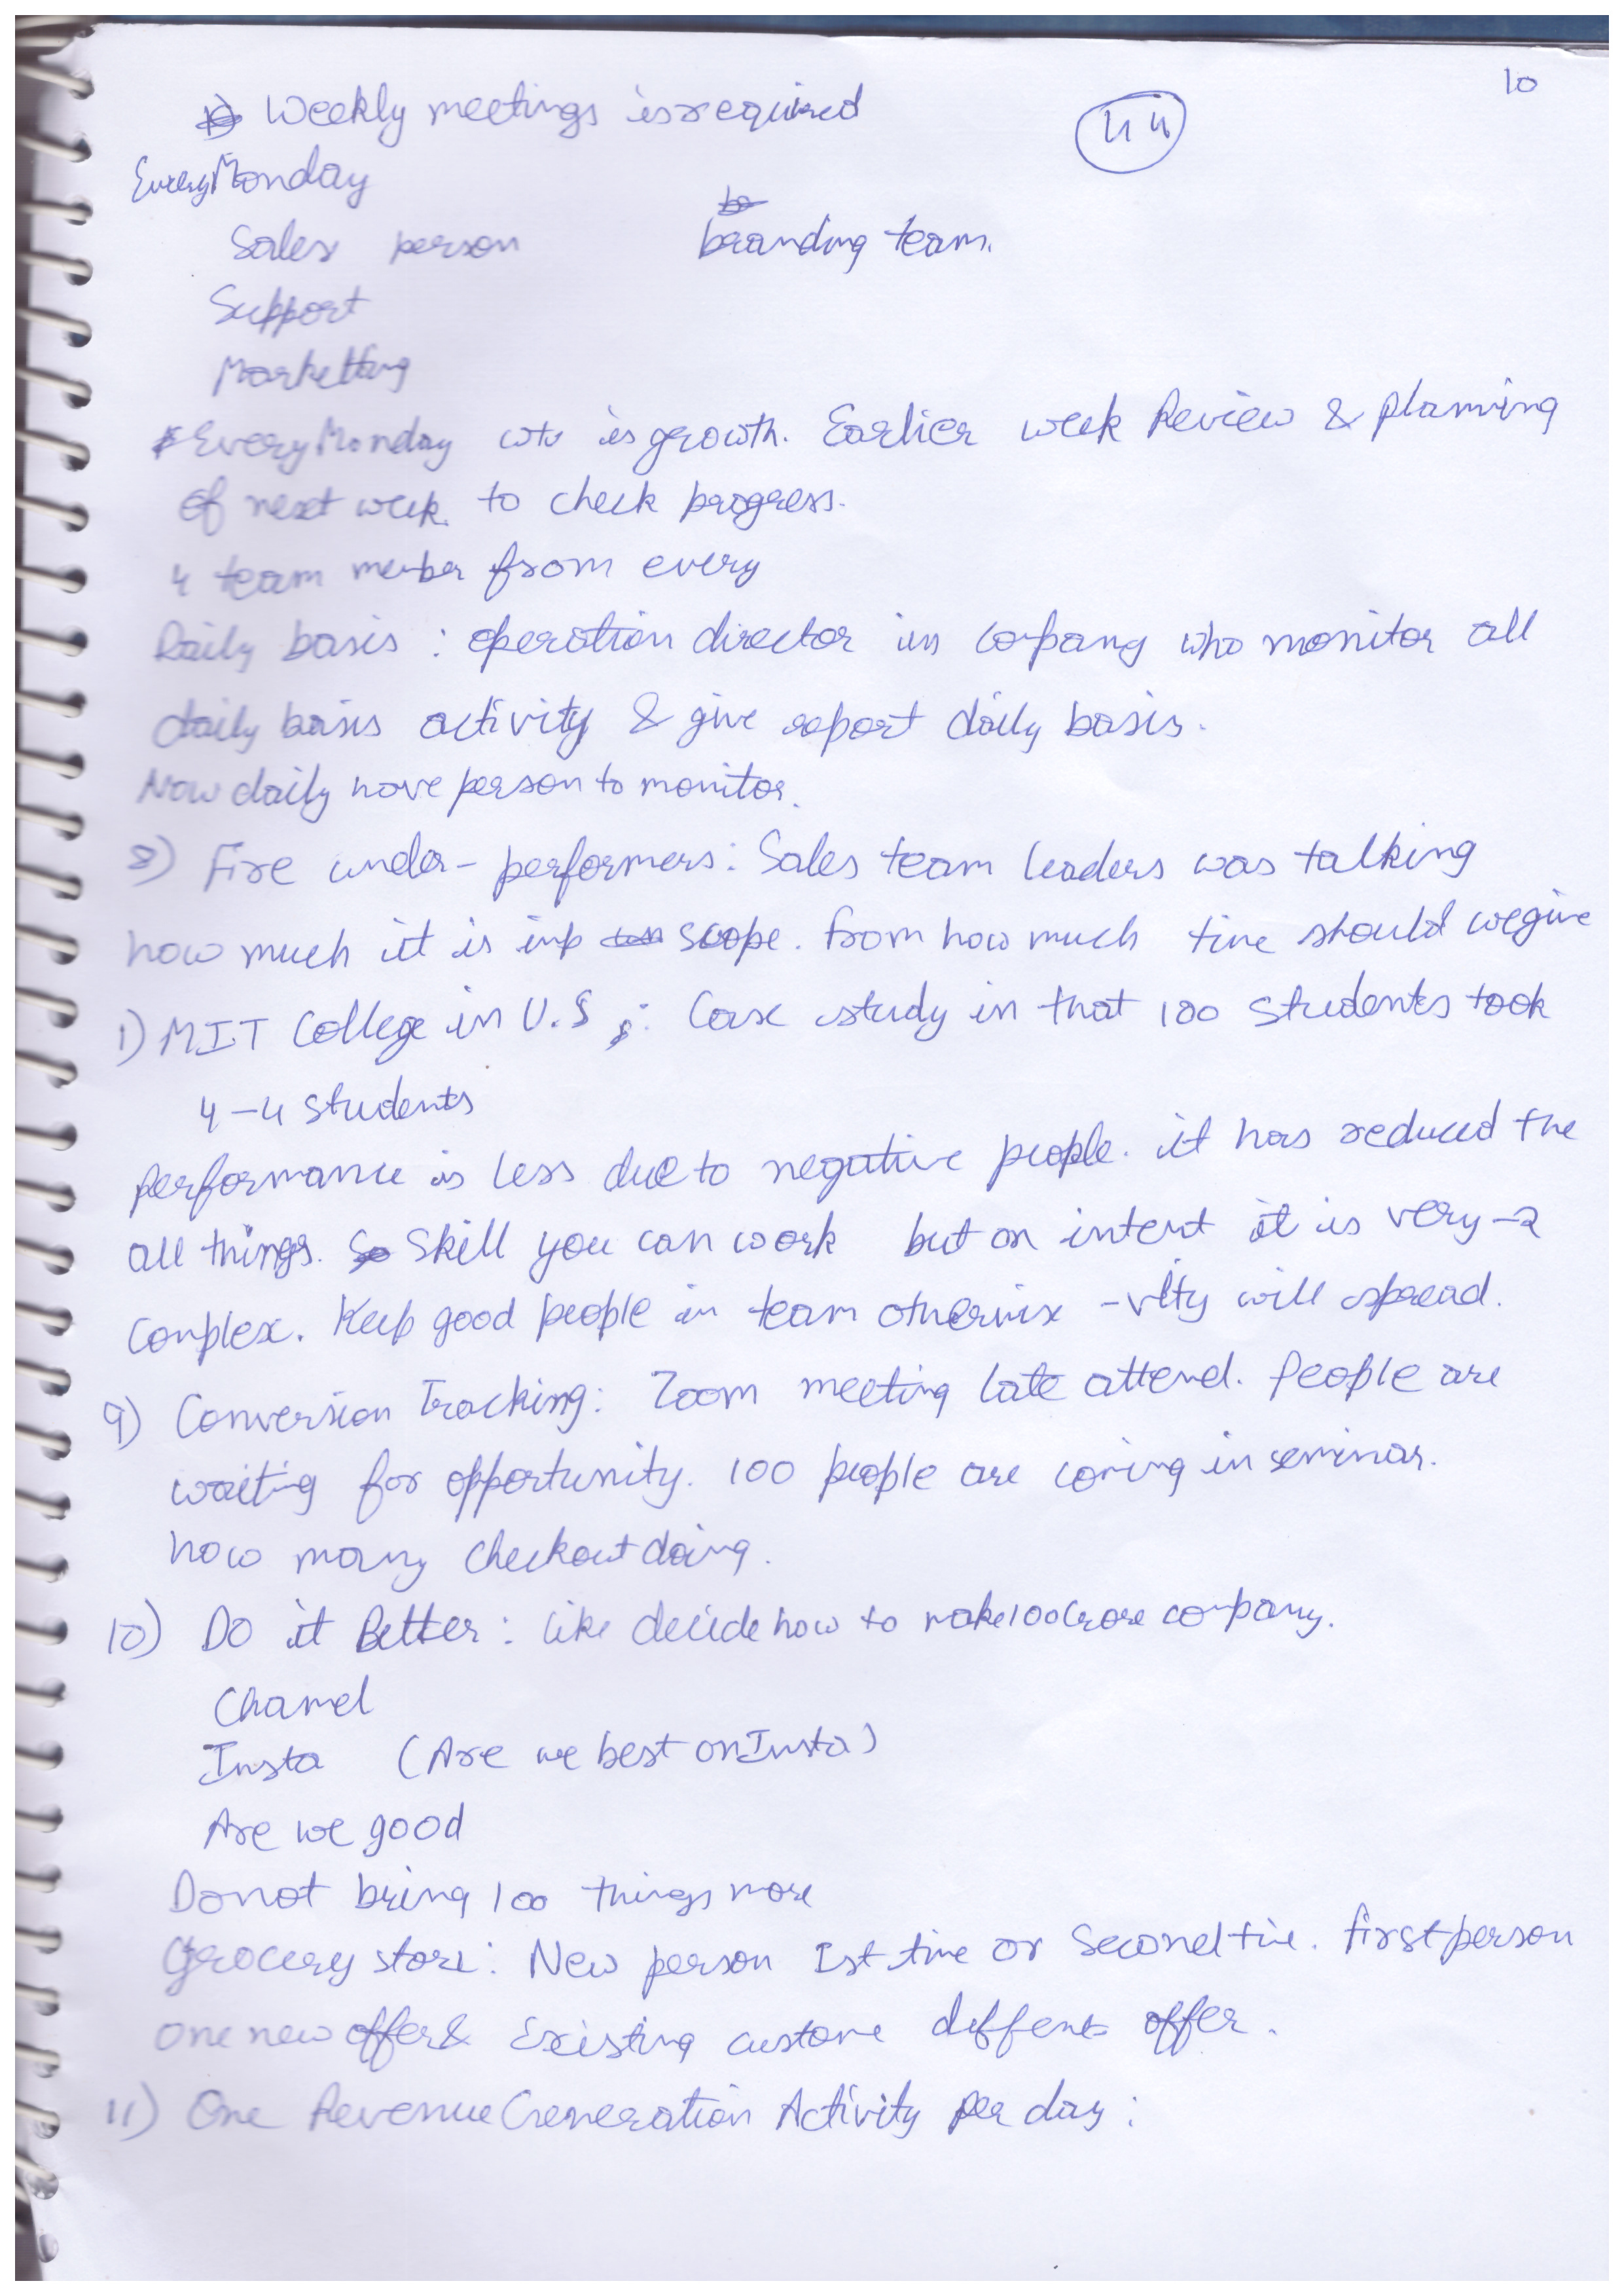 10
Weekly meetings is required
44
Every Monday
Sales person branding team.
Support
Marketting
Every Monday is growth. Earlier week Review & planning
of next week. to check progress.
4 team member from every
Daily basis : operation director in company who monitor all
daily basis activity & give report daily basis.
Now daily have person to monitor.
8) Fire under-performers: Sales team leaders was talking
how much it is imp scope. from how much time should we give
1) MIT College in U.S : Case study in that 100 Students took
4-4 students
performance is less due to negative people. it has reduced the
all things. Skill you can work but on intent it is very-2
Complex. Keep good people in team otherwise -vity will spread.
9) Conversion Tracking: Zoom meeting late attend. People are
waiting for opportunity. 100 people are coming in seminar.
how many checkout doing.
10) Do it Better: like decide how to make 100 Crore company.
Channel
Insta (Are we best on Insta)
Are we good
Do not bring 100 things more
Grocery store: New person Ist time or Second time. first person
one new offer & Existing custome deffent offer.
11) One Revenue Generation Activity per day :